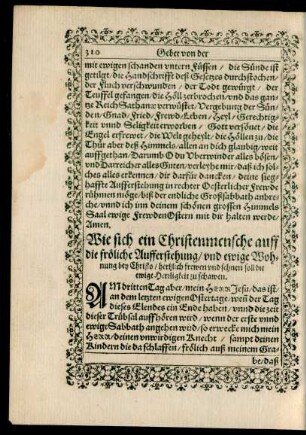 310 Gebet von der
mit ewigen schanden vntern Füssen / die Sünde ist
getilgt / die Handschrifft deß Gesetzes durchstochen /
der Fluch verschwunden / der Todt gewürgt / der
Teuffel gefangen / die Höll zerbrochen / vnd das gan-
tze Reich Sathans verwüstet. Vergebung der Sün-
den / Gnad / Fried / Frewd / Leben / Heyl / Gerechtig-
keit vnnd Seligkeit erworben / Gott versönet / die
Engel erfrewet / die Welt geheyle / die Höllen zu / die
Thür aber deß Himmels / allen an dich glaubig / weit
auffgethan. Darumb O du Vberwinder alles bösen /
vnd Darreicher alles Guten / verleyhe mir / daß ich sol-
ches alles erkennen / dir darfür dancken / deine sieg-
haffte Aufferstehung in rechter Oesterlicher Frewde
rühmen möge / biß der endliche Großsabbath anbre-
che / vnnd ich inn deinem schönen grossen Himmels
Saal ewige FrewdenOstern mit dir halten werde /
Amen.
Wie sich ein Christenmensche auff
die fröliche Aufferstehung / vnd ewige Woh-
nung bey Christo / hertzlich frewen vnd sehnen soll die
ewige Herrligkeit zu schawen.
AM dritten Tag aber / mein HErr Jesu / das ist /
an dem letzten ewigen Ostertage / weñ der Tag
dieses Elendes ein Ende haben / vnnd die zeit
dieser Trübsal auffhören wird / wenn der erste vnd
ewige Sabbath angehen wird / so erwecke mich mein
HErr / deinen vnwirdigen Knecht / sampt deinen
Kindern die da schlaffen / frölich auß meinem Gra-
be / daß